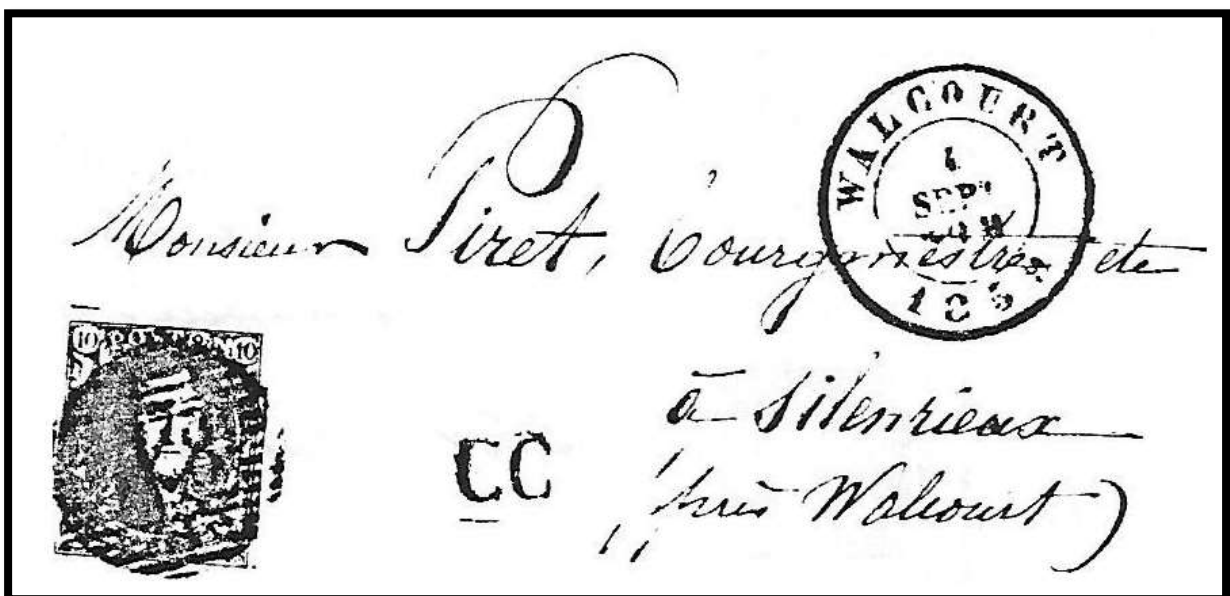 WALCOURT
SEPT
Monsieur Piret, Bourgmestre etc
10 10
CC
à Silenrieux
(près Walcourt)